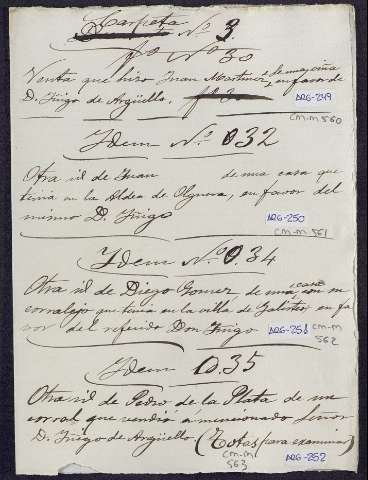 Carpeta Nº 3
fº Nº 30
Venta que hizo Juan Martinez, de una viña en favor de
D. Iñigo de Argüello. ARG-249
CM-M 560
Ydem Nº 032
Otra id de Juan de una casa que
tenia en la Aldea de Olguera, en favor del
mismo D. Iñigo ARG-250
CM-M 561
Ydem Nº 0.34
Otra id de Diego Gomez, de una casa con su
corralejo que tenia en la villa de Galisteo, en fa
vor del referido Don Iñigo ARG-251 CM-M
562
Ydem 0.35
Otra id de Pedro de la Plata de un
corral que vendió á mencionado Señor
D. Iñigo de Argüello (Notas para examinar)
CM-M 563 ARG-252